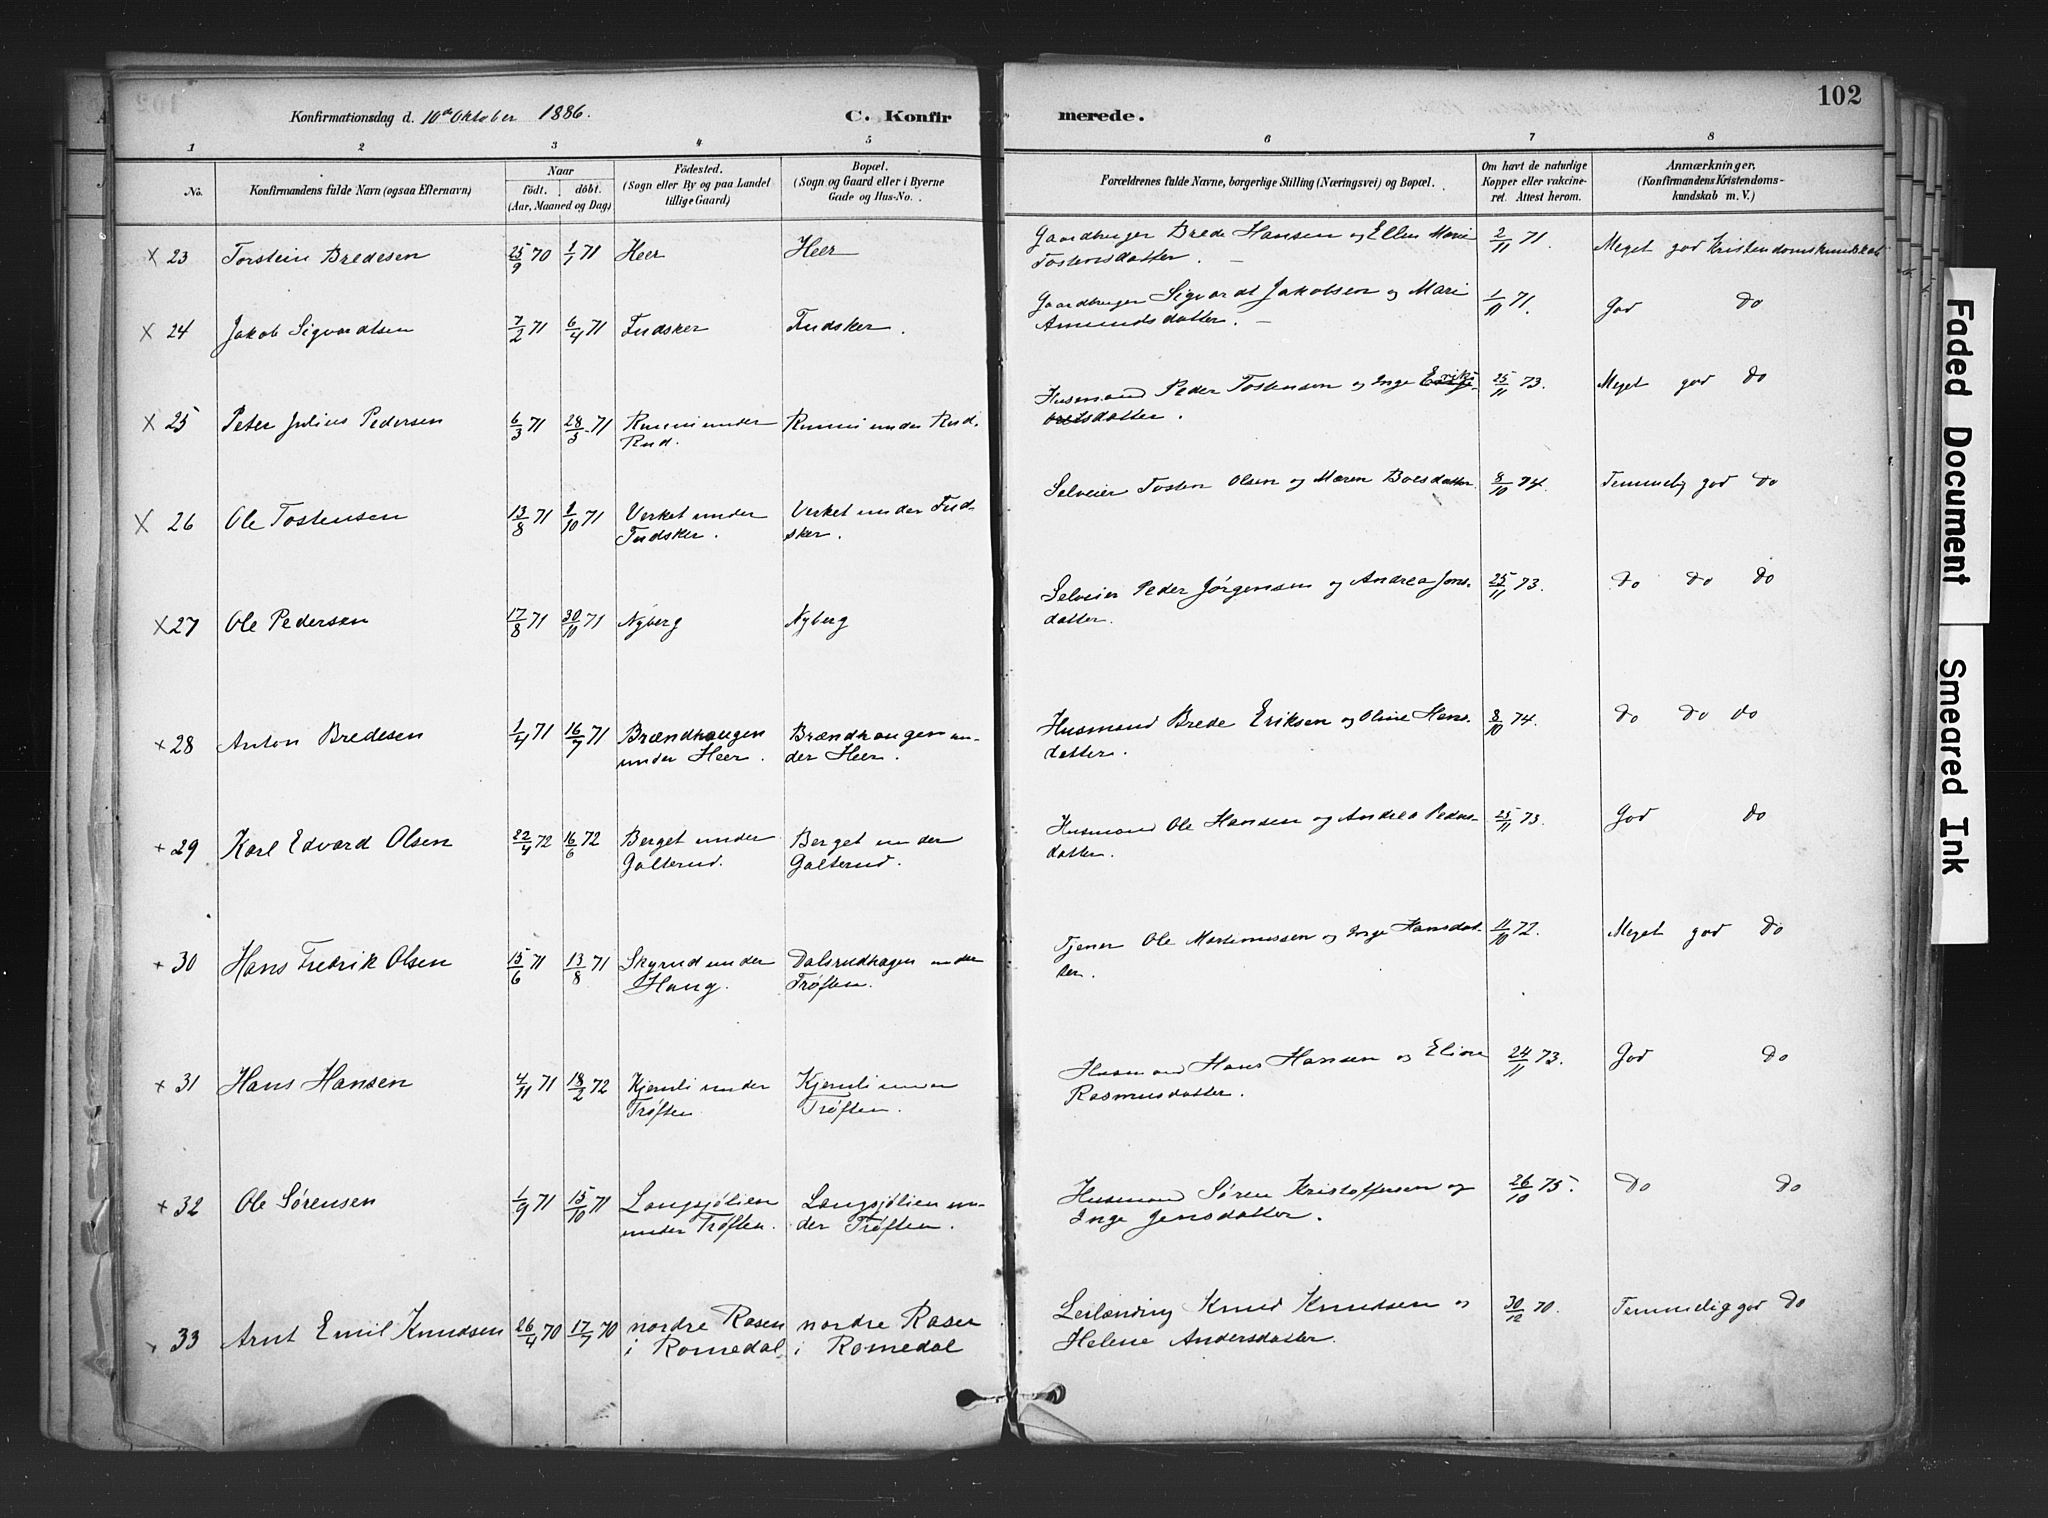 102
Konfirmationsdag d. 10de Oktober 1886.
C. Konfir merede.
1 2 3 4 5 6 7 8
No.
Konfirmandens fulde Navn (ogsaa Efternavn)
Naar
födt. döbt.
(Aar, Maaned og Dag)
Födested.
(Sogn eller By og paa Landet
tillige Gaard)
Bopæl.
(Sogn og Gaard eller i Byerne
Gade og Hus-No.
Forældrenes fulde Navne, borgerlige Stilling (Næringsvei) og Bopæl.
Om havt de naturlige
Kopper eller vakcine-
ret. Attest herom.
Anmærkninger.
(Konfirmandens Kristendoms-
kundskab m. V.)
x 23 Torstein Bredesen 25/9 70 1/1 71 Heer Heer Gaardbruger Brede Hansen og Ellen Marie
Tostensdatter. 2/11 71. Meget god Kristendomskundskab
x 24 Jakob Sigvardtsen 7/2 71 6/4 71 Fudsker Fudsker. Gaardbruger Sigvardt Jakobsen og Mari
Amundsdatter. 1/11 71. God Do
x 25 Peter Julius Pedersen 6/3 71 28/5 71 Runni under
Rud. Runni under Rud. Husmand Peder Tostensen og Inge Eriks
datter. 25/11 73. Meget god Do
x 26 Ole Tostensen 13/8 71 8/10 71 Verket under
Fudsker. Verket under Fud-
sker. Selveier Tosten Olsen og Maren Boesdatter 8/10 74. Temmelig god Do
x 27 Ole Pedersen 17/8 71 30/10 71 Nyberg Nyberg Selveier Peder Jørgensen og Andrea Jons-
datter. 25/11 73. Do Do Do
x 28 Anton Bredesen 1/4 71 16/7 71 Brændhaugen
under Heer. Brændhaugen un-
der Heer. Husmand Brede Eriksen og Oline Hans-
datter. 8/10 74. Do Do Do
+ 29 Karl Edvard Olsen 22/4 72 16/6 72 Berget under
Galterud. Berget under
Galterud. Husmand Ole Hansen og Andrea Peders-
datter. 25/11 73. God Do
+ 30 Hans Fredrik Olsen 15/6 71 13/8 71 Skyrud under
Haug. Dalsrudhagen under
Trøften. Tjener Ole Martinussen og Inge Hansdat-
ter. 11/10 72. Meget god Do
+ 31 Hans Hansen 4/11 71 18/2 72 Kjernli under
Trøften. Kjernli under
Trøften. Husmand Hans Hansen og Eline
Rasmusdatter. 24/11 73. God Do
+ 32 Ole Sørensen 1/9 71 15/10 71 Langsjølien
under Trøften. Langsjølien un-
der Trøften. Husmand Søren Kristoffersen og
Inge Jensdatter. 26/10 75. Do Do
33 Arnt Emil Knudsen 26/4 70 17/7 70 nordre Rosen
i Romedal nordre Rosen
i Romedal Leilænding Knud Knudsen og
Helene Andersdatter. 30/12 70. Temmelig god Do
Faded Document
Smeared Ink